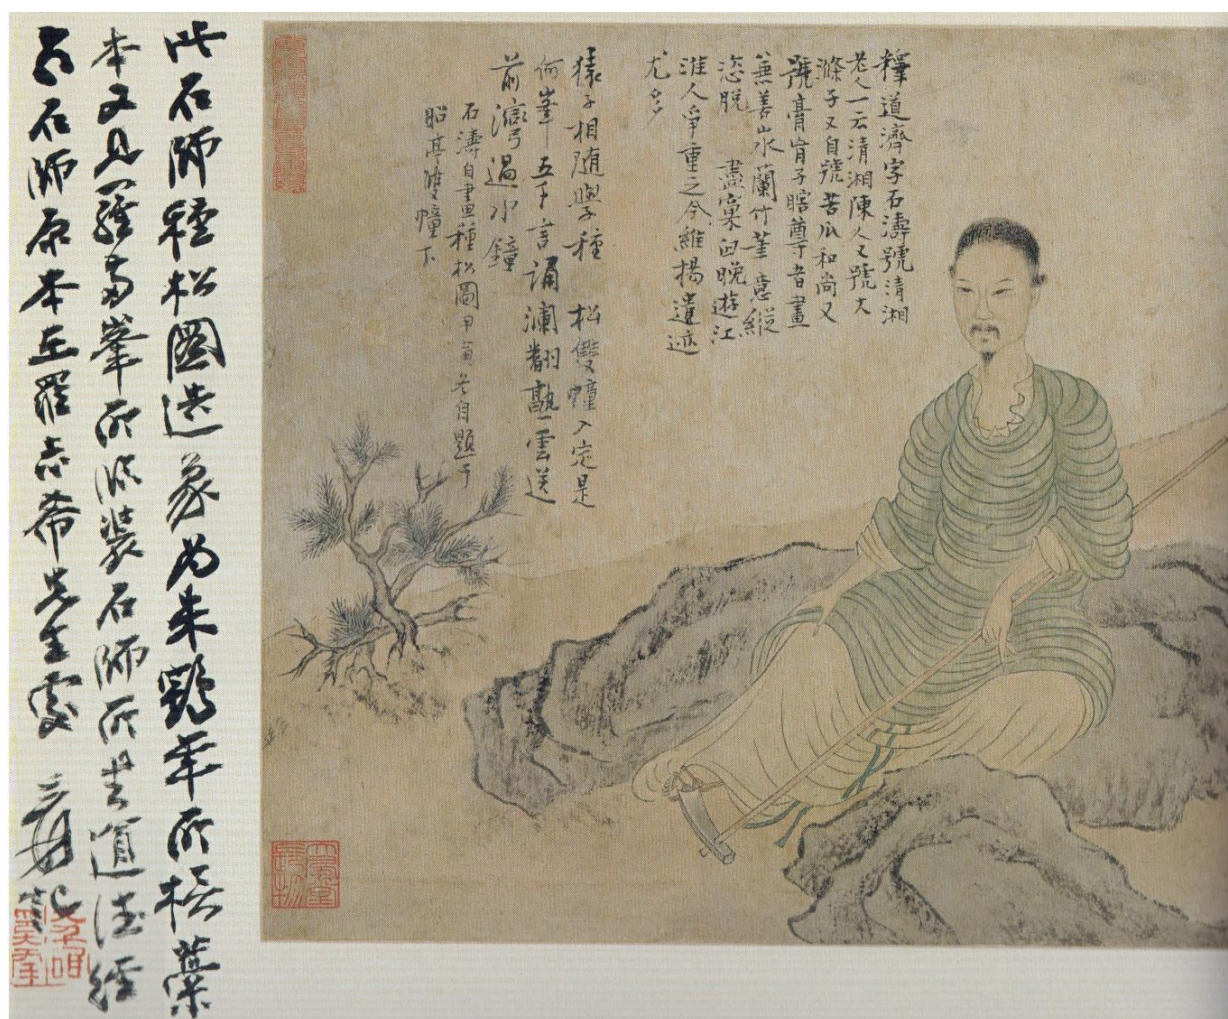 釋道濟字石濤號清湘
老人一云清湘陳人又號大
滌子又自號苦瓜和尚又
號膏肓子瞎尊者畫
兼善山水蘭竹筆意縱
恣脫盡窠臼晚遊江
淮人爭重之今維揚遺迹
尤多
猿子相隨學種松雙幢入定是
何峯五千言誦瀾翻熟雲送
前灣過水鐘
石濤自畫種松圖甲寅冬自題于
昭亭雙幢下
此石師種松圖造象為朱鶴年所橅藁
本又見羅兩峯所臨裝石師所書道德經
前石師原本在羅志希先生處